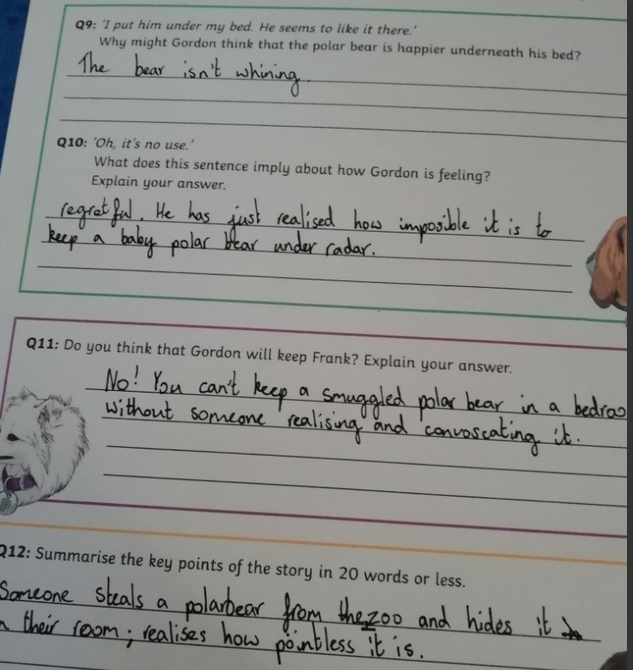 Q9: 'I put him under my bed. He seems to like it there.'
Why might Gordon think that the polar bear is happier underneath his bed?
The bear isn't whining
Q10: 'Oh, it's no use.'
What does this sentence imply about how Gordon is feeling?
Explain your answer.
regretful. He has just realised how impossible it is to
keep a baby polar bear under radar.
Q11: Do you think that Gordon will keep Frank? Explain your answer.
No! You can't keep a smuggled polar bear in a bedroo
without someone realising and convoscating it.
Q12: Summarise the key points of the story in 20 words or less.
Someone steals a polarbear from the zoo and hides it
n their room; realises how pointless it is.